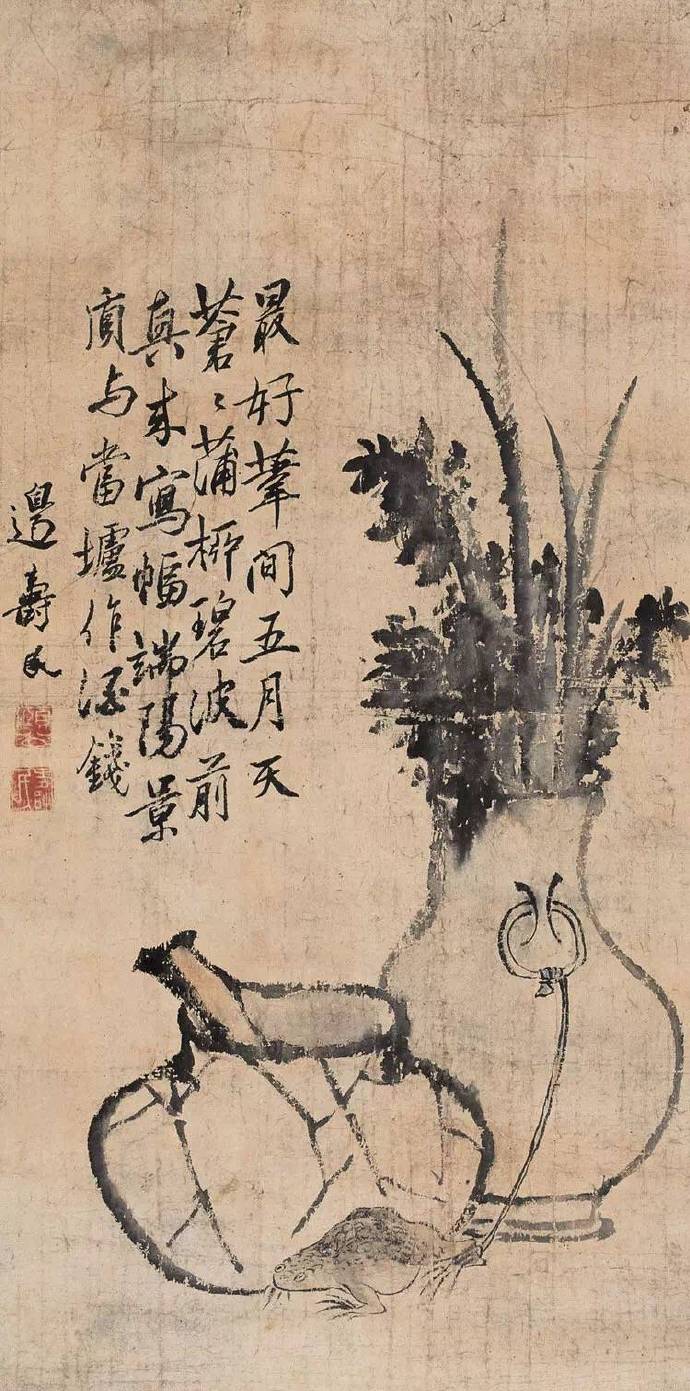 最好葦間五月天
蒼〻蒲柳碧波前
興來寫幅端陽景
貭与當壚作酒錢
邊壽民